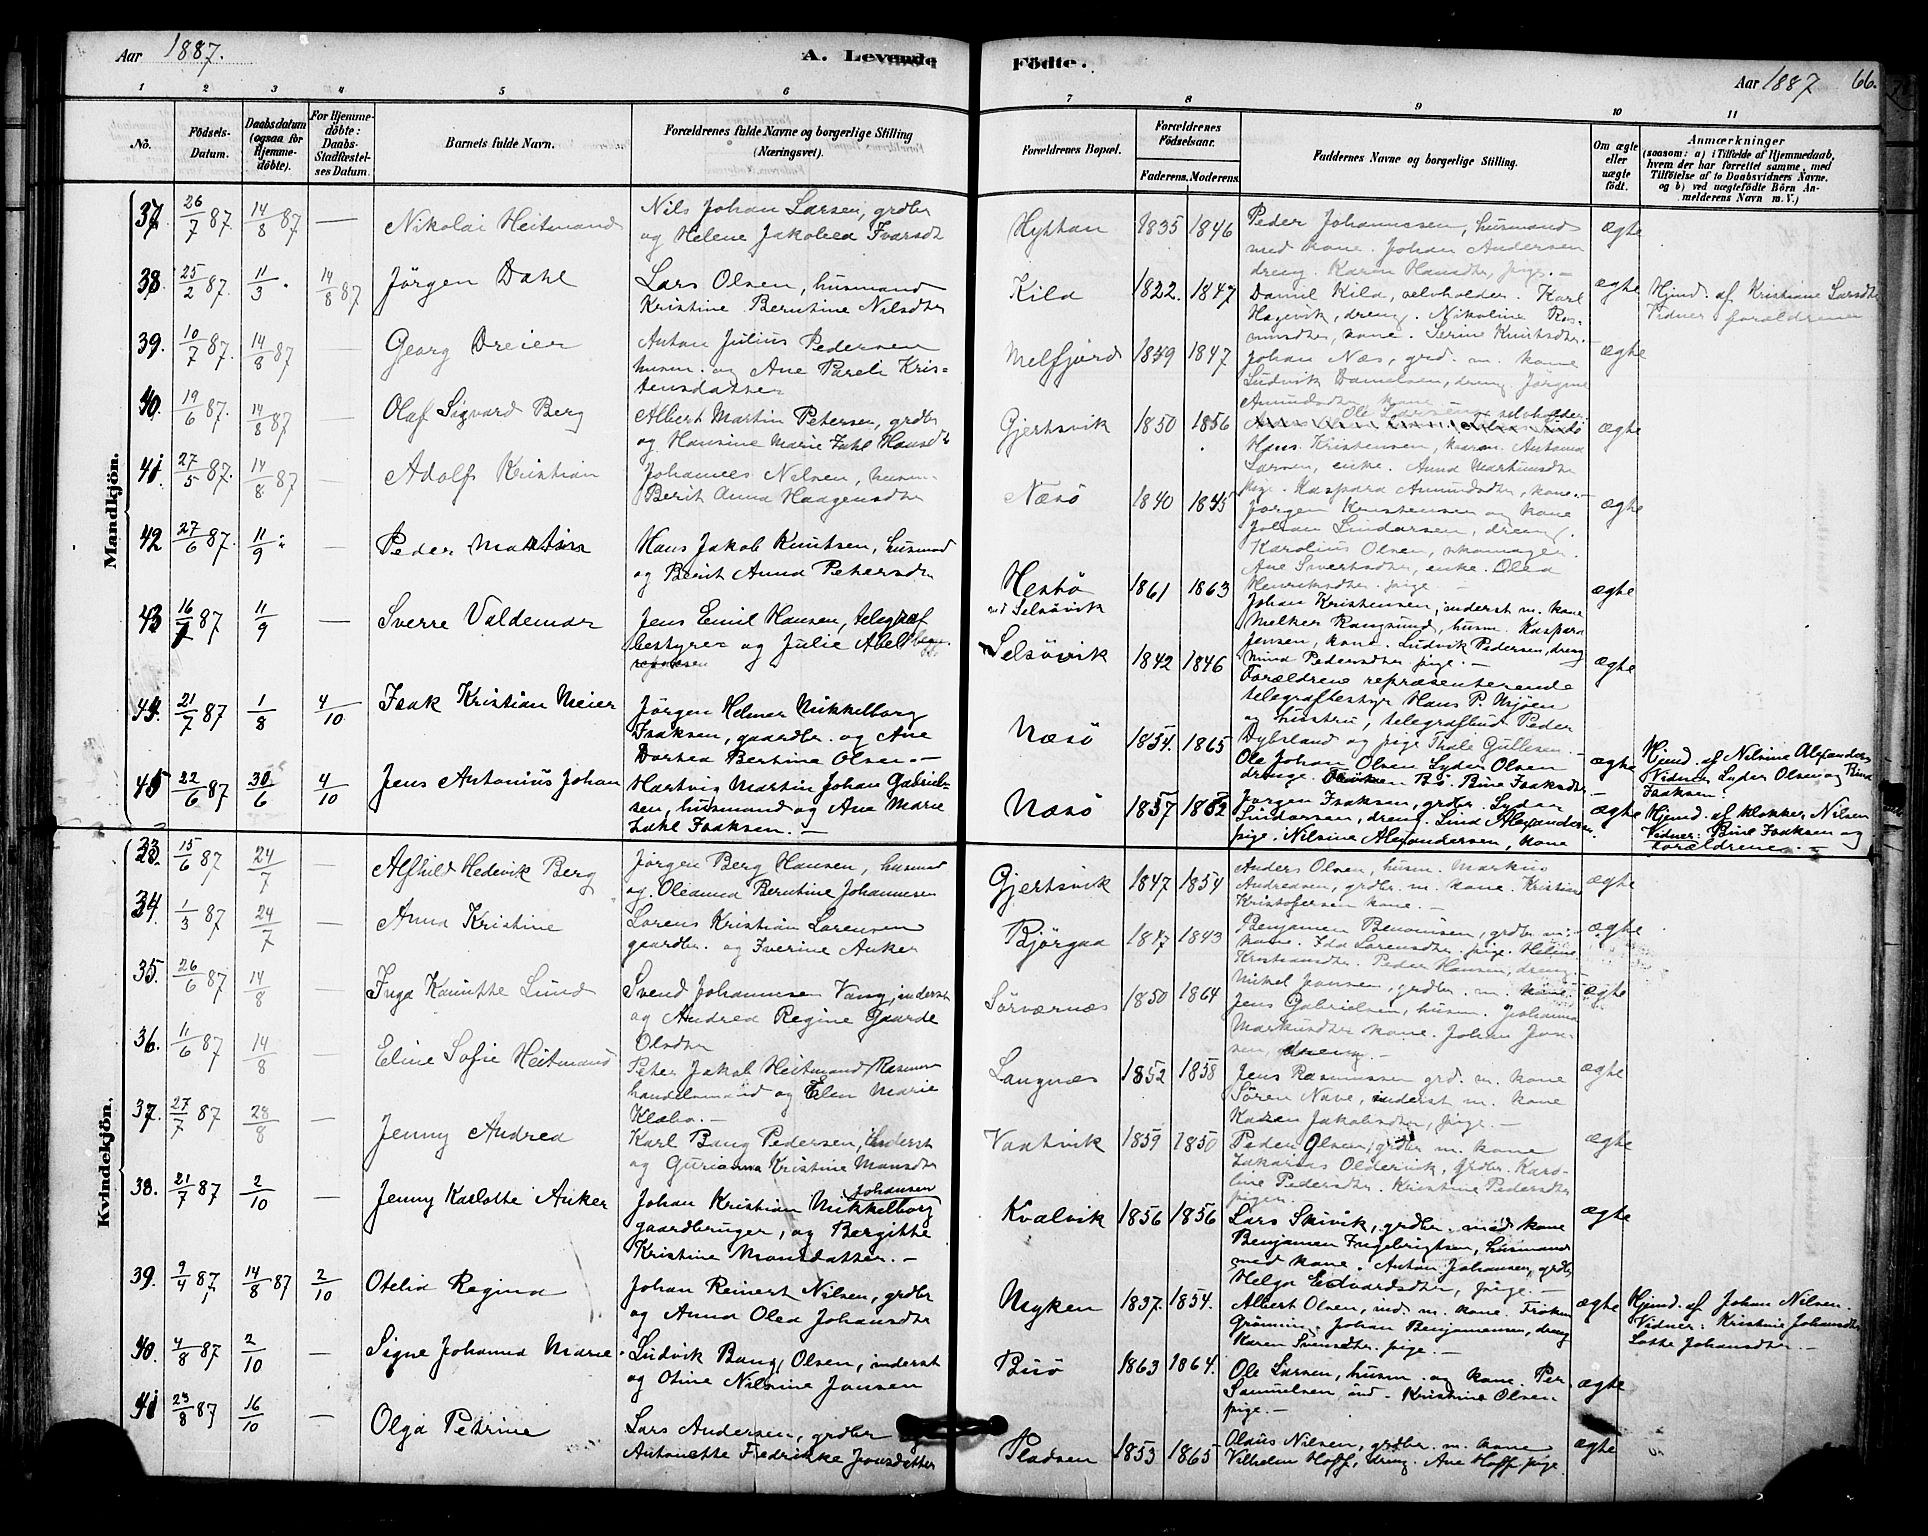 Aar 1887.
A. Levende Födte.
Aar 1887 66.
1 2 3 4 5 6 7 8 9 10 11
No.
Födsels-
Datum.
Daabsdatum
(ogsaa for
Hjemme-
döbte).
For Hjemme-
döbte:
Daabs-
Stadfæstel-
ses Datum.
Barnets fulde Navn.
Forældrenes fulde Navne og borgerlige Stilling
(Næringsvei).
Forældrenes Bopæl.
Forældrenes
Födselsaar.
Faderens. Moderens.
Faddernes Navne og borgerlige Stilling.
Om ægte
eller
uægte
födt.
Anmærkninger
(saasom: a) i Tilfælde af Hjemmedaab,
hvem der har forrettet samme, med
Tilföielse af to Daabsvidners Navne.
og b) ved uægtefödte Börn An-
melderens Navn m. V.)
Mandkjön.
37. 26/7 87 14/8 87 — Nikolai Heitmand
Nils Johan Larsen, grdbr
og Helene Jakobea Ivarsdt
Hyttan 1835 1846
Peder Johannessen, husmand
med kone. Johan Andersen
dreng. Karen Hansdtr, pige. —
ægte
38. 25/2 87. 11/3 14/8 87 Jörgen Dahl
Lars Olsen, husmand
Kristine Berntine Nilsdtr
Kila 1822. 1847
Daniel Kila, selvholder. Karl
Hagevik, dreng. Nikoline Ras-
musdtr, kone. Serine Knutsdtr. —
ægte
Hjmd. af Kristiane Larsdtr
Vidner forældrene
39. 10/7 87. 14/8 87 — Georg Dreier
Anton Julius Pedersen
husm. og Ane Pareli Kris-
tensdatter
Melfjord 1859 1847
Johan Næs, grd. m. kone
Ludvik Danielsen, dreng. Jörgine
Amundsdtr kone
ægte
40. 19/6 87. 14/8 87 — Olaf Sigvard Berg
Albert Martin Petersen, grdbr
og Hansine Marie Zahl Hansdt
Gjertsvik 1850 1856
Ole Larsen, selvholder.
Hans Kristensen, Antona
Larsen, enke. Anna Martinsdtr
pige. Kaspara Amundsdtr, kone. —
ægte
41 27/5 87. 14/8 87 — Adolf Kristian
Johannes Nilsen, husm.
Berit Anna Haagensdtr
Næsö 1840 1845
Jörgen Kristensen og kone
Johan Lindarsen, dreng.
Karolius Olsen, skomager.
Ane Sivertsdtr, enke. Olea
Henriksdtr. pige —
ægte
42 27/6 87. 11/9 — Peder Martin
Hans Jakob Knutsen, husmd
og Berit Anna Petersdtr
Hestö
ved Selsövik 1861 1863
Johan Kristensen, inderst m. kone
Melker Rangsund, husm. Kaspara
Jensen, kone. Ludvik Pedersen, dreng
Mina Pedersdtr pige. —
ægte
43 16/1 87 11/9 — Sverre Valdemar
Jens Emil Hansen, telegraf
bestyrer og Julie Abel
Selsövik 1842 1846
Forældrene repræsenterende
telegrafbestyr Hans P. Mjöen
og hustru, telegrafbud Peder
Dybsland og pige Thale Gullesen. —
ægte
44. 21/7 87 1/8 4/10 Isak Kristian Meier
Jörgen Helmer Mikkelborg
Isaksen, gaardbr. og Ane
Dorthea Bertine Olsen. —
Næsö 1854. 1865
Ole Johan Olsen Lyder Olsen
drenge. Bö. Bine Isaksdtr. —
ægte
Hjmd. af Nilsine Alexanders
Vidner Lyder Olsen og Bine
Isaksen.
45 22/6 87 30/6 4/10 Jens Antonius Johan
Hartvig Martin Johan Gabriel-
sen, husmand og Ane Marie
Zahl Isaksen. —
Næsö 1857 1862
Jörgen Isaksen, grdbr. Lyder
Lindarsen, dreng. Lina Alexandersen
pige. Nilsine Alexandersen, kone
ægte
Hjemd. af klokker Nilsen
Vidner: Bine Isaksen og
forældrene. —
Kvindekjön.
33. 15/6 87 24/7 Alfhild Hedevik Berg
Jörgen Berg Hansen, husmd
og Oleanna Berntine Johannesen
Gjertsvik 1847 1854
Anders Olsen, husm. Markus
Andreasen, grdbr. m. kone. Kristine
Kristofersen kone. —
ægte
34. 1/3 87 24/7 — Anna Kristine
Lorens Kristian Lorensen
gaardbr. og Iverine Anker
Björgaa 1847 1843
Benjamen Benoinisen, grdbr m.
kone. Ida Lorensdtr. pige. Heline
Kristiansdtr. Peder Hansen, dreng. —
ægte
35. 26/6 87 14/8 — Inga Kamitte Lund
Svend Johannesen Vang, inderst
og Andrea Regine Gaarde
Olsdtr
Sörværnes 1850 1864
Mikel Jonsen, grdbr. m. kone.
Jens Gabrielsen, husm. Johanna
Markusdtr kone. Johan Jon-
sen, dreng. —
ægte
36. 11/6 87 14/8 — Eline Sofie Heitmand
Peter Jakob Heitmand Rasmus
handelsmand og Elen Marie
Klæbo. —
Langnæs 1852 1858
Jens Rasmussen grd. m. kone
Sören Nave, inderst m. kone
Karen Jakobsdtr, pige. —
ægte
37. 27/7 87 28/8 — Jenny Andrea
Karl Bang Pedersen, inderst
og Gurianna Kristine Monsdtr
Vaatvik 1859 1850
Peder Olsen, grdbr m. kone
Zakarias Oldervik, grdbr. Karo-
line Pedersdtr. Kristine Pedersdtr
piger. —
ægte
38. 21/7 87 2/10 — Jenny Karlotte Anker
Johan Kristian Mikkelborg Johansen
gaardbruger, og Bergitte
Kristine Monsdatter. —
Kvalvik 1856 1856
Lars Skivik, grdbr. med kone
Benjamen Ingebrigtsen, husmand
med kone. Anton Johansen, grdbr
Helga Edvardsdtr, pige. —
ægte
39. 9/4 87 14/8 87 2/10 Otelia Regina
Johan Reinert Nilsen, grdbr
og Anna Olea Johansdtr
Myken 1837. 1854.
Albert Olsen, ind. m. kone. Fröken
Grönning. Johan Benjamensen, dreng
Karen Svensdtr. pige. —
ægte
Hjmd. af Johan Nilsen.
Vidner: Kristine Johansdtr
Lotte Johansdtr. —
40. 4/8 87 2/10 — Signe Johanna Marie
Ludvik Bang Olsen, inderst
og Otine Nilsine Jonsen
Busö 1863 1864.
Ole Larsen, husm. og kone. Per
Samuelsen ind. Kristine Olsen
pige. —
ægte
41 23/8 87 16/10 — Olga Petrine
Lars Andersen, grdbr
Antonette Fredrikke Jonsdatter
Pladsen 1853 1865
Olaus Nilsen, grdbr. m. kone
Vilhelm Hoff, dreng. Ane Hoff pige
ægte